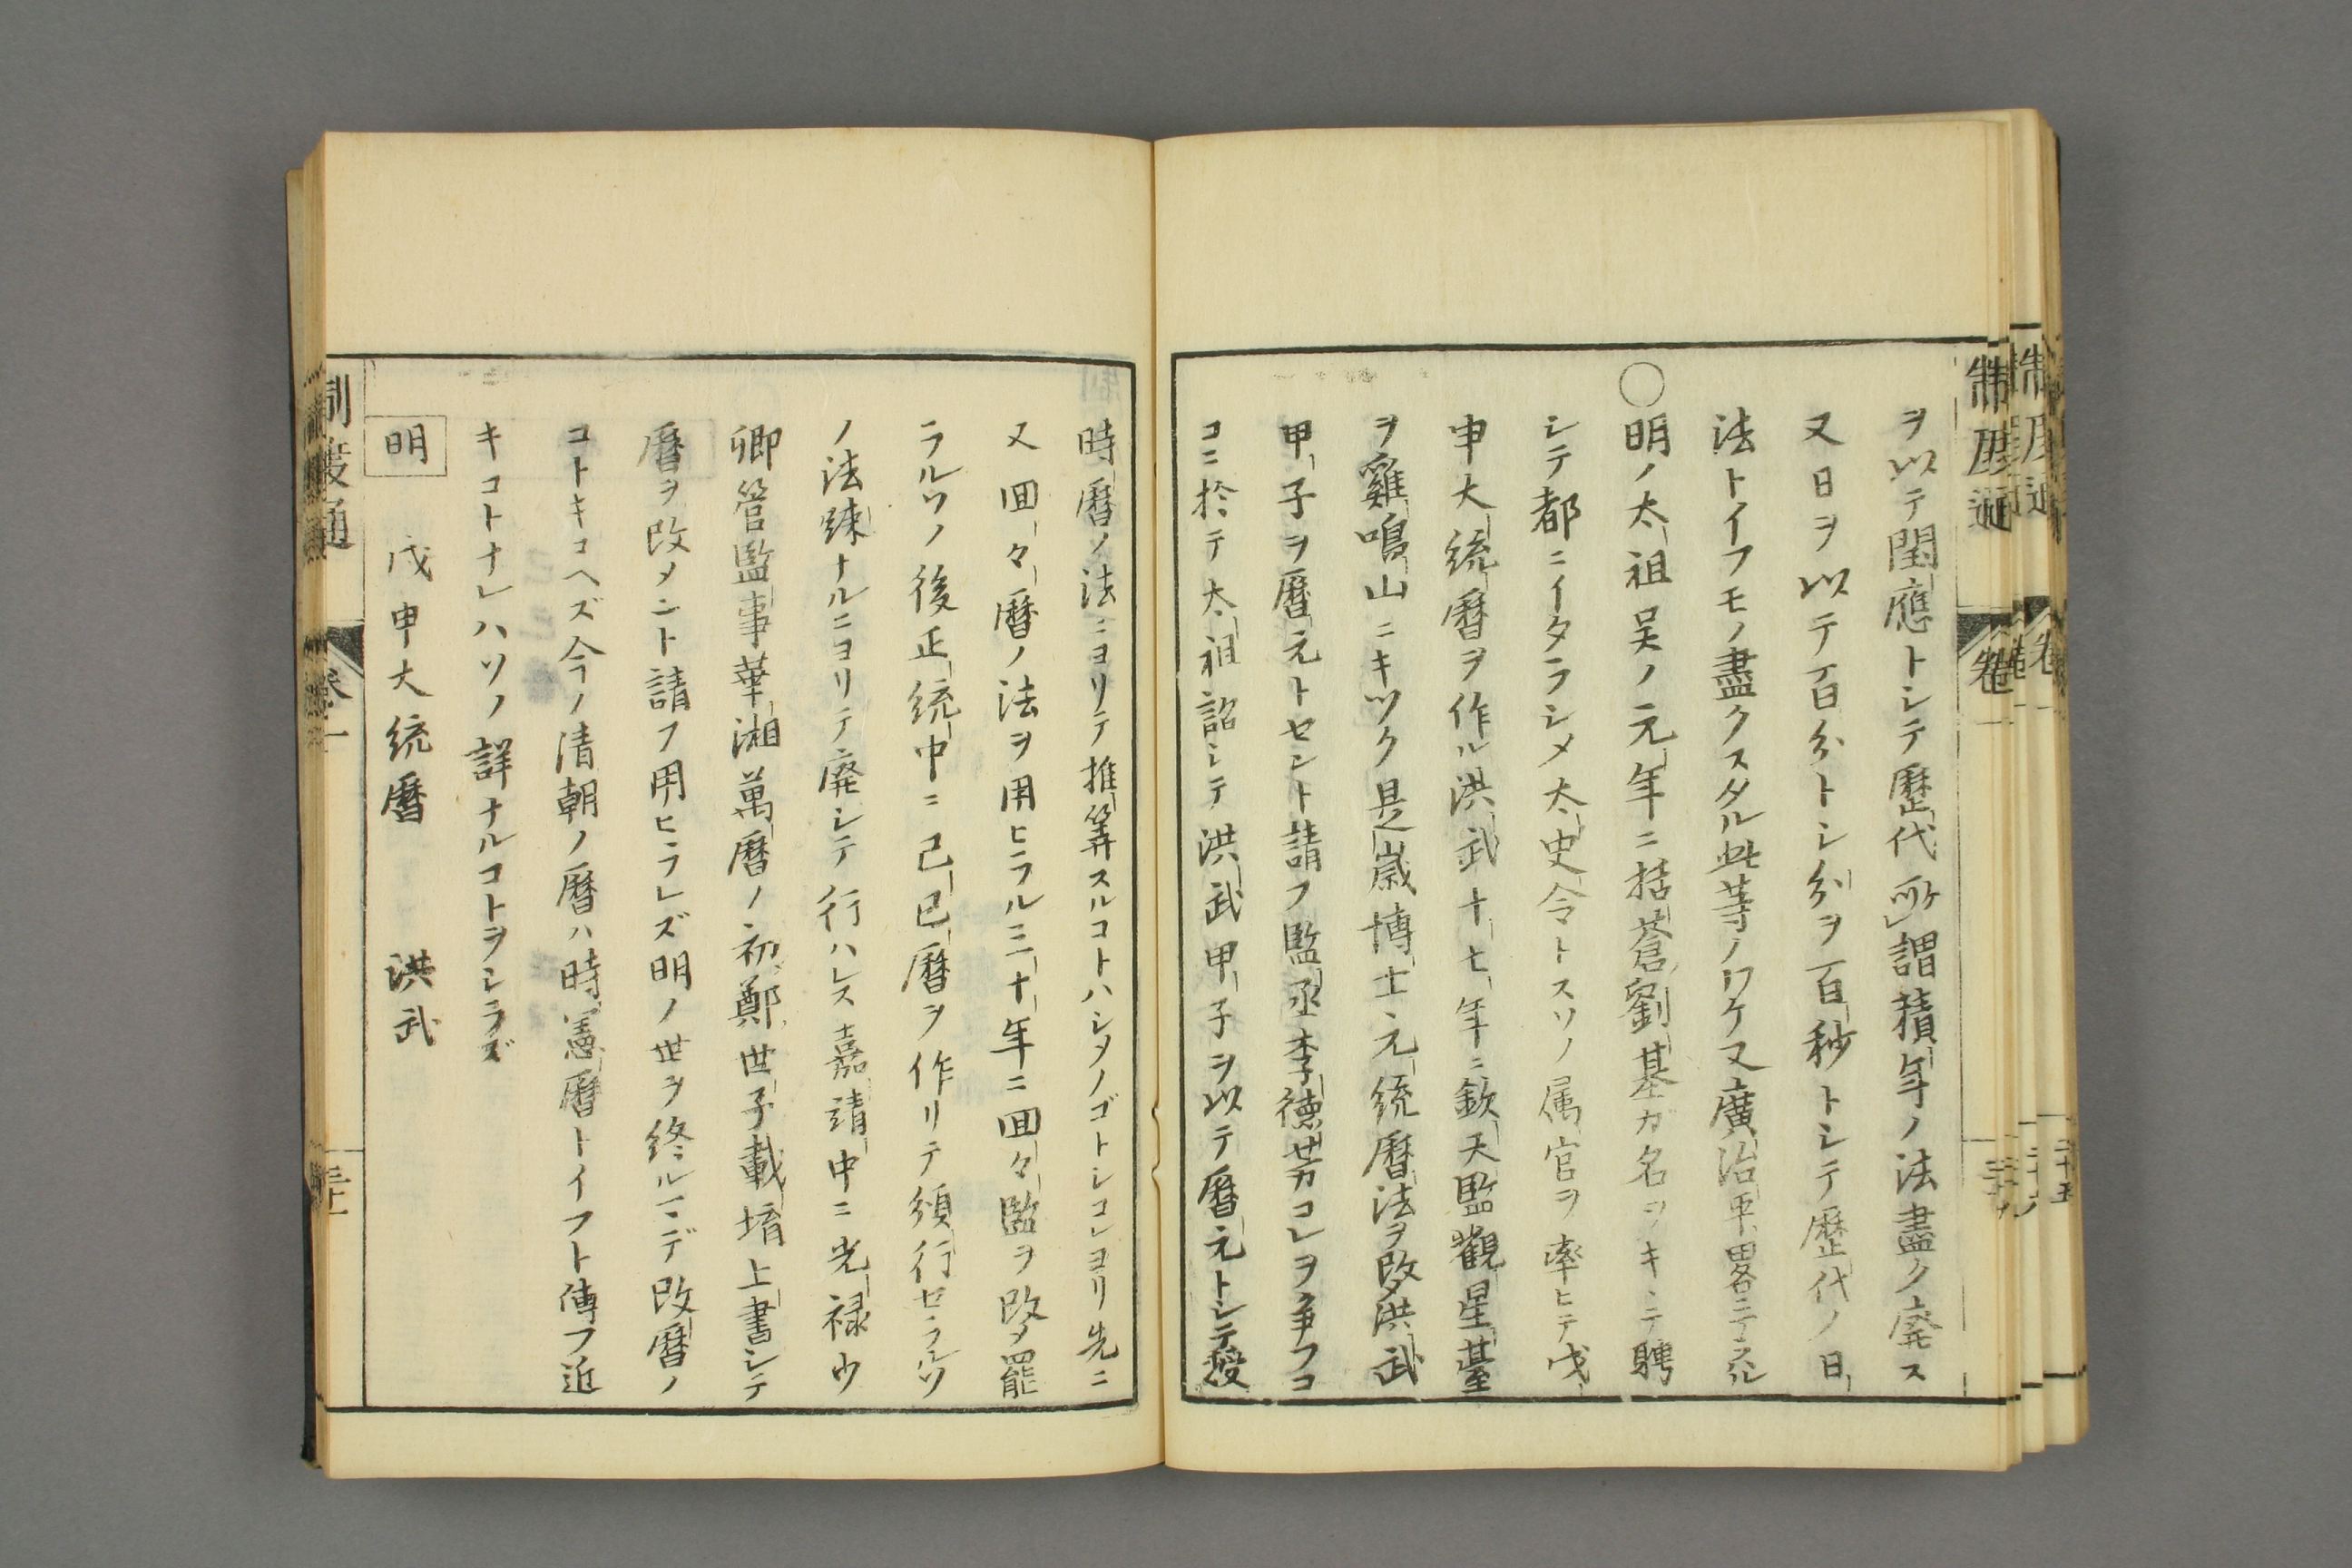 ヲ以テ閏應トシテ歷代所謂積年ノ法盡ク廃ス
又日ヲ以テ百分トシ分ヲ百秒トシテ歷代ノ日
法トイフモノ盡クスタル此等ノワケ又廣治平畧ニテラル
○明ノ太祖吴ノ元年ニ括蒼劉基ガ名ヲキヽテ聘
シテ都ニイタラシメ太史令トスソノ属官ヲ率ヒテ戊
申大統曆ヲ作ル洪武十七年ニ欽天監觀星臺
ヲ雞鳴山ニキツク是歲博士元統曆法ヲ改メ洪武
甲子ヲ曆元トセント請フ監丞李德芳コレヲ争フコ
コニ於テ太祖詔シテ洪武甲子ヲ以テ曆元トシテ授
時曆ノ法ニヨリテ推筭スルコトハシメノゴトシコレヨリ先ニ
又回々曆ノ法ヲ用ヒラル三十年ニ回々監ヲ改メ罷
ラルソノ後正統中ニ己巳曆ヲ作リテ頒行セラルソ
ノ法踈ナルニヨリテ廃シテ行ハレス嘉靖中ニ光禄少
卿管監事華湘萬曆ノ初鄭世子載堉上書シテ
曆ヲ改メント請フ用ヒラレズ明ノ世ヲ終ルマデ改曆ノ
コトキコヘズ今ノ清朝ノ曆ハ時憲曆トイフト傳フ近
キコトナレハソノ詳ナルコトヲシラズ
明 戊申大統曆 洪武
制度通 卷一